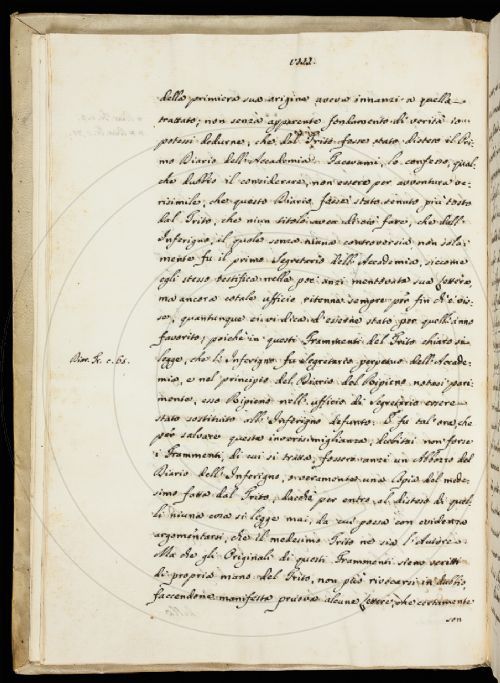 VIII.
della primiera sua origine aveva innanzi a quella
trattato, non senza apparente fondamento di verità io
potessi dedurne, che dal Trito fosse stato disteso il Pri-
mo Diario dell'Accademia. Facevami, lo confesso, qual-
che dubbio il considerare, non essere per avventura ve-
risimile, che questo Diario fosse stato tenuto più tosto
dal Trito, che niun titolo avea di ciò fare, che dall'
Inferigno, il quale senza niuna controversia non sola-
mente fu il primo Segretario dell'Accademia, siccome
egli stesso testifica nella poc'anzi mentovata sua lettera,
ma ancora cotale ufficio ritenne sempre per fin ch'ei vis-
se, quantunque ei vi dica d'esserne stato per quell'anno
favorito; poichè in questi Frammenti del Trito chiaro si
legge, che l'Inferigno fu Segretario perpetuo dell'Accade-
mia, e nel principio del Diario del Ripieno notasi pari-
mente, esso Ripieno nell'ufficio di Segretario essere
stato sostituito all'Inferigno defunto. E fu tal'ora che
per salvare questa inverisimiglianza, dubitai non forse
i Frammenti, di cui si tratta, fossero anzi un Abbozzo del
Diario dell'Inferigno, o veramente una Copia del mede-
simo fatta dal Trito, dachè per entro al disteso di quel-
li niuna cosa si legge mai, da cui possa con evidenza
argomentarsi, che il medesimo Trito ne sia l'Autore.
Ma che gli Originali di questi Frammenti sieno scritti
di propria mano del Trito, non può rivocarsi in dubbio,
faccendone manifesta pruova alcune lettere, che certamente
son
Diar. Tr. c. 61.